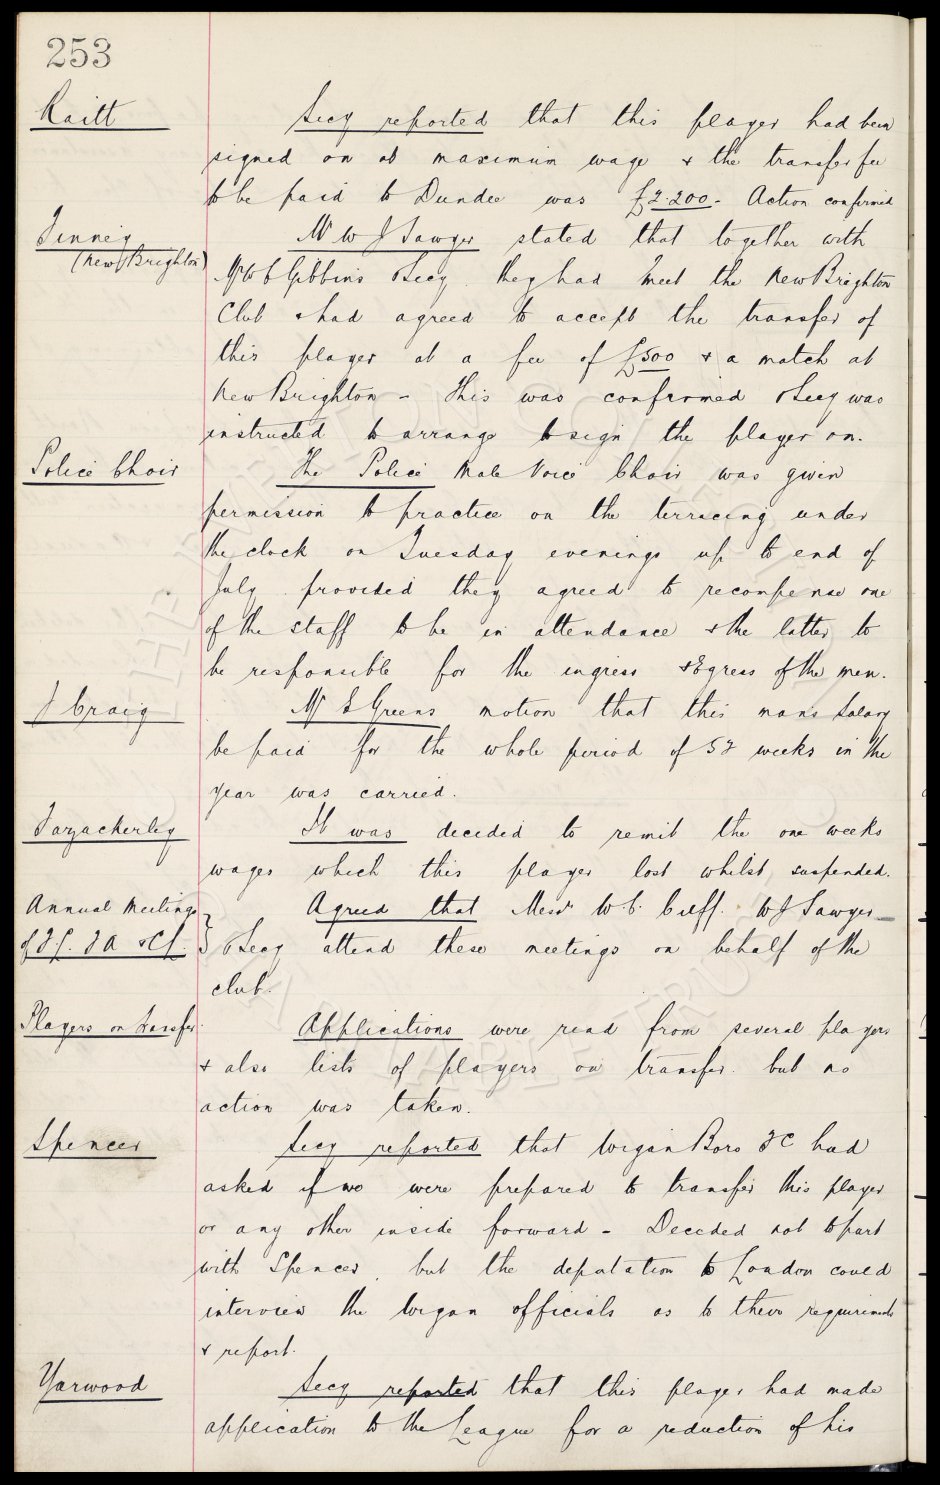 253
Raitt
Secy reported that this player had been
signed on at maximum wage & the transfer fee
to be paid to Dundee was £2.200 - Action confirmed
(New Brighton)
Mr W J Sawyer stated that together with
Mr W C Gibbins & Secy. they had meet the New Brighton
Club & had agreed to accept the transfer of
this player at a fee of £500 & a match at
New Brighton - This was confirmed & Secy was
instructed to arrange to sign the player on.
Police Choir
The Police Male Voice Choir was given
permission to practice on the terracing under
the clock on Tuesday evenings up to end of
July provided they agreed to recompense one
of the staff to be in attendance & the latter to
be responsible for the ingress & Egress of the men.
J Craig
Mr E Greens motion that this mans Salary
be paid for the whole period of 52 weeks in the
year was carried.
It was decided to remit the one weeks
wages which this player lost whilst suspended.
Annual Meetings
of F L. F A & C L.
Agreed that Messrs W C. Cuff. W J Sawyer
& Secy attend these meetings on behalf of the
club.
Players on transfer
Applications were read from several players
& also lists of players on transfer. but no
action was taken.
Spencer
Secy reported that Wigan Boro F C had
asked if we were prepared to transfer this player
or any other inside forward - Decided not to part
with Spencer, but the deputation to London could
interview the Wigan officials as to their requirements
& report.
Yarwood
Secy reported that this player had made
application to the League for a reduction of his